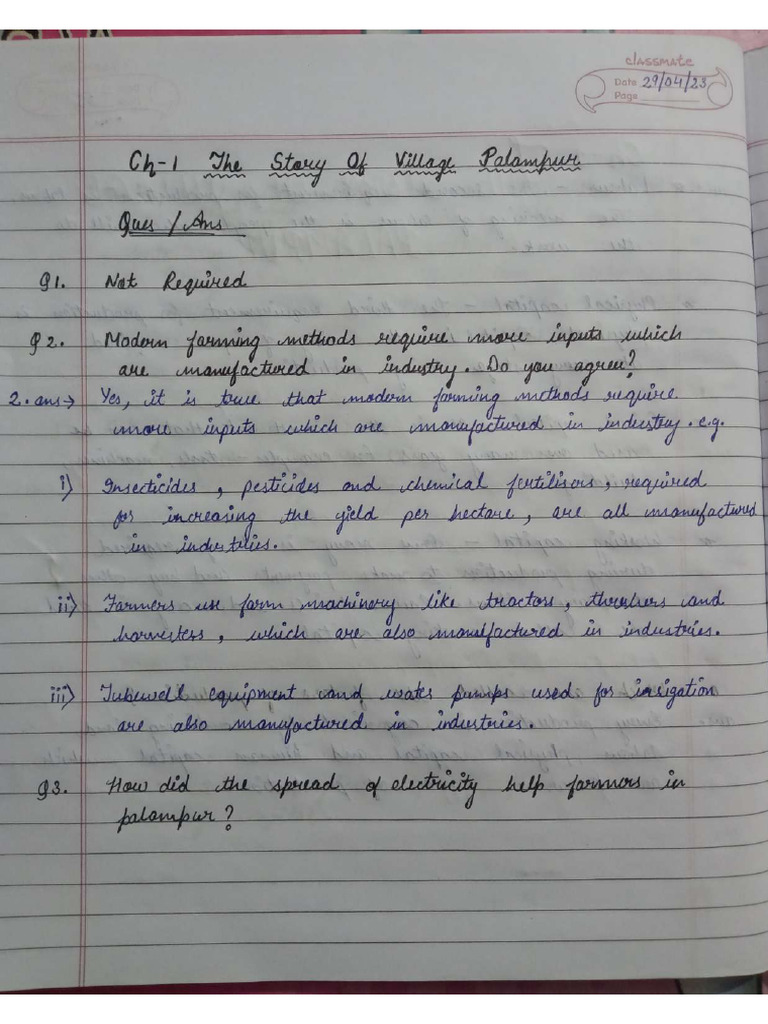 classmate
Date 29/04/23
Page
Ch-1 The Story Of Village Palampur
Ques / Ans
Q1. Not Required
Q2. Modern farming methods require more inputs which
are manufactured in industry. Do you agree?
2. ans → Yes, it is true that modern farming methods require
more inputs which are manufactured in industry. e.g.
i) Insecticides, pesticides and chemical fertilisers, required
for increasing the yield per hectare, are all manufactured
in industries.
ii) Farmers use farm machinery like tractors, threshers and
harvesters, which are also manufactured in industries.
iii) Tubewell equipment and water pumps used for irrigation
are also manufactured in industries.
Q3. How did the spread of electricity help farmers in
palampur?